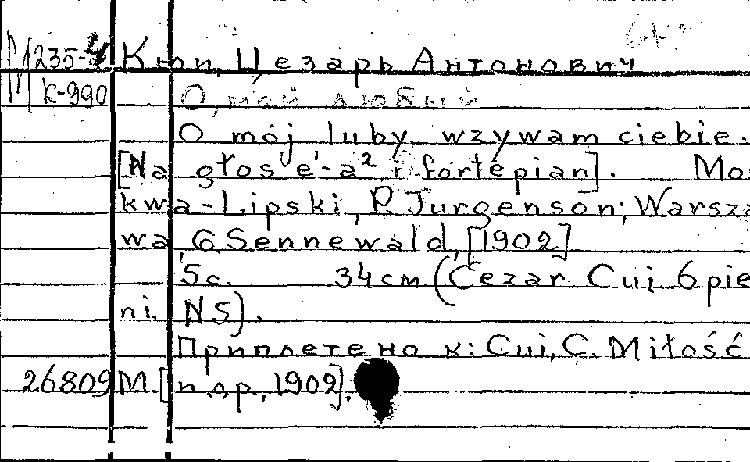 М 235-4 Кюи, Цезарь Антонович
К-990 О, мой любый
O mój luby, wzywam ciebie.
[Na głos e'-a² i fortepian]. Mo
kwa-Lipski, P. Jurgenson; Warsza
wa, G. Sennewald, [1902]
5 c. 34 cm (Cezar Cui. 6 pie
ni. N5).
Приплетено к: Cui, C. Miłość
26809 М. [п др, 1902].